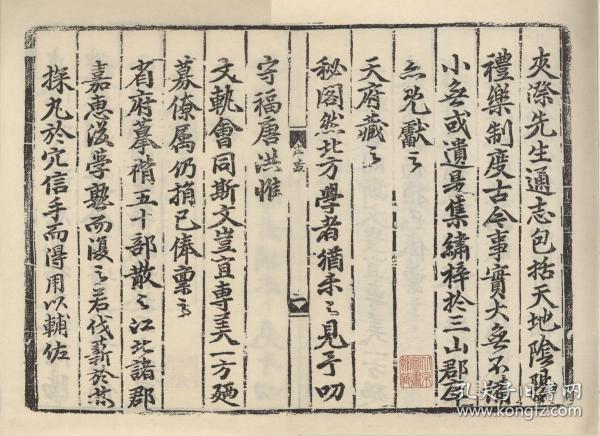 夾漈先生通志包括天地陰陽
禮樂制度古今事實大無不備
小無或遺是集繡梓於三山郡庠
亦既獻之
天府藏之
秘閣然北方學者猶未之見予叨
守福唐洪惟
文軌會同斯文豈宜專美一方廼
募僚属仍捐己俸稟之
省府摹褙五十部散之江北諸郡
嘉惠後學熟而復之若伐薪於林
探丸於穴信手而得用以輔佐
孔夫子旧书网
www.kongfz.com